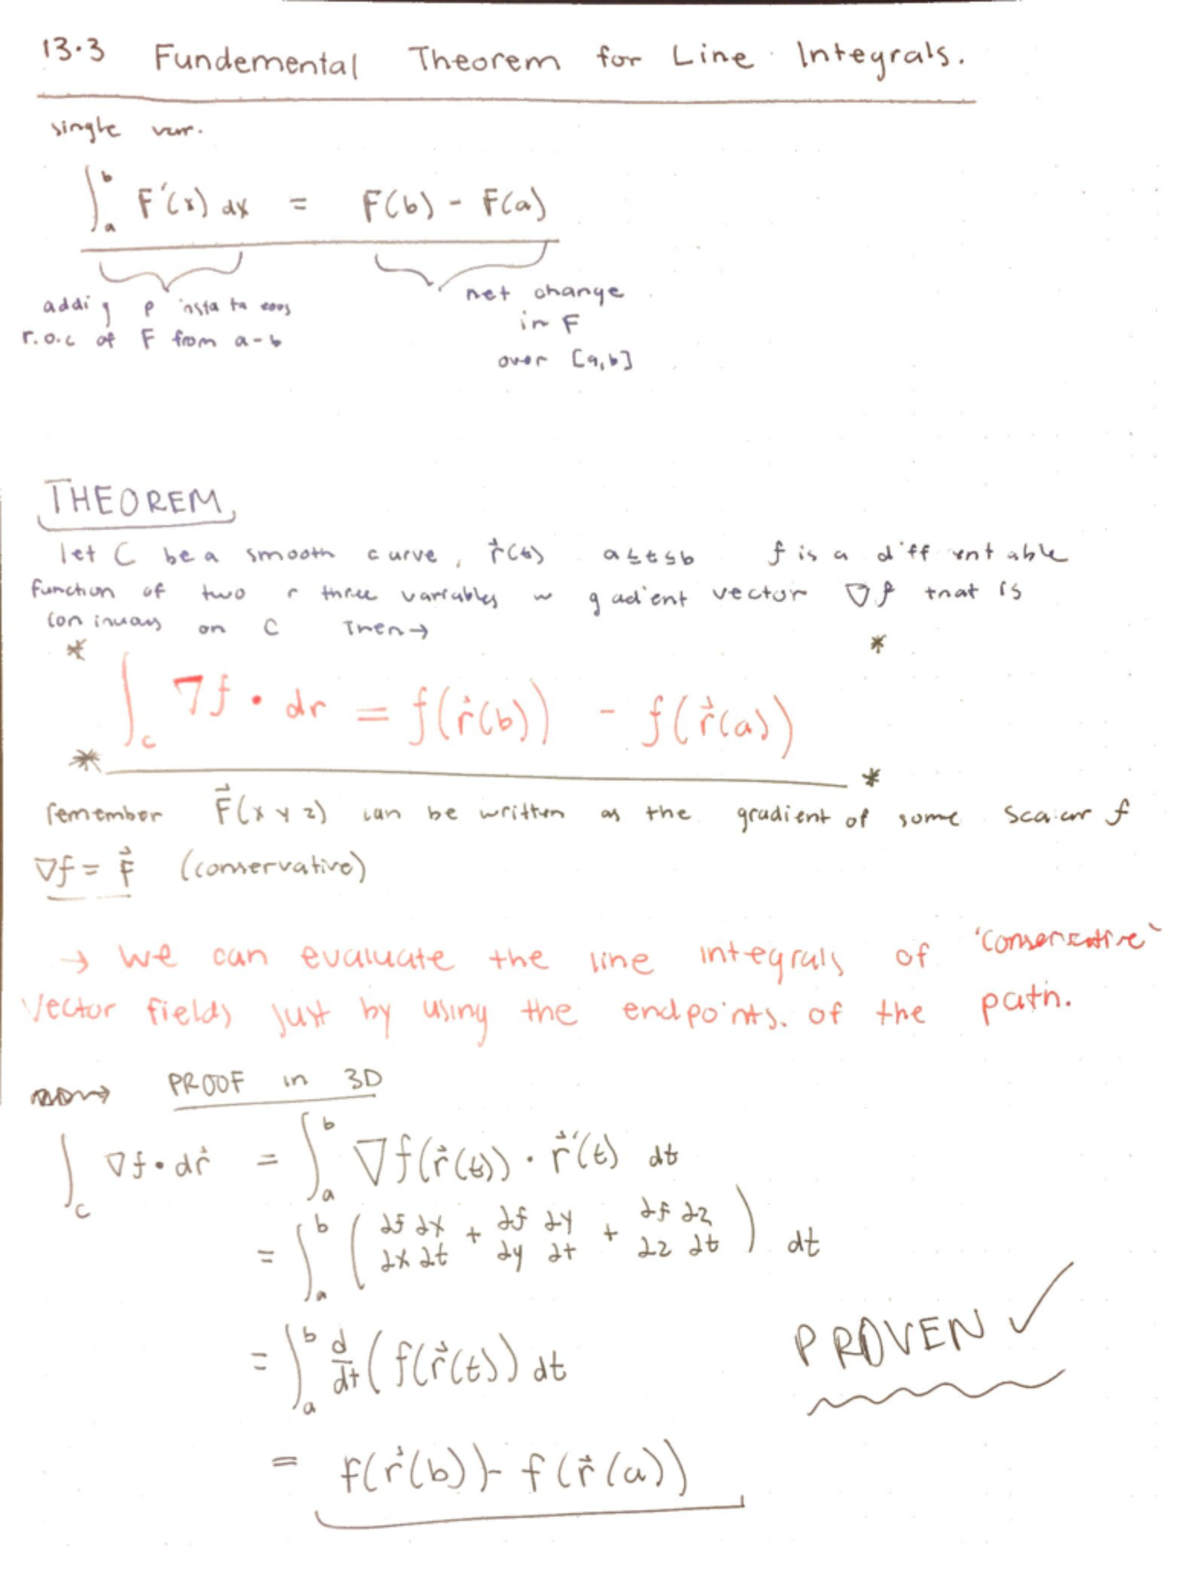 13.3 Fundemental Theorem for Line Integrals.
single var.
∫_a^b F'(x) dx = F(b) - F(a)
addi g p insta ta eous
r.o.c of F from a-b
net change
in F
over [a,b]
THEOREM
let C be a smooth curve, r⃗(t) a≤t≤b f is a diff ent able
function of two r three variables w g adient vector ∇f that is
con inuous on C Then →
* *
∫_c ∇f · dr = f(r⃗(b)) - f(r⃗(a))
* *
remember F⃗(x y z) can be written as the gradient of some scalar f
∇f = F⃗ (conservative)
→ we can evaluate the line integrals of 'conservative'
vector fields just by using the endpoints. of the path.
PROOF in 3D
∫_c ∇f · dr⃗ = ∫_a^b ∇f(r⃗(t)) · r⃗'(t) dt
= ∫_a^b (∂f ∂x / ∂x ∂t + ∂f ∂y / ∂y ∂t + ∂f ∂z / ∂z ∂t) dt
= ∫_a^b d/dt (f(r⃗(t)) dt
PROVEN ✓
= f(r⃗(b)) - f(r⃗(a))